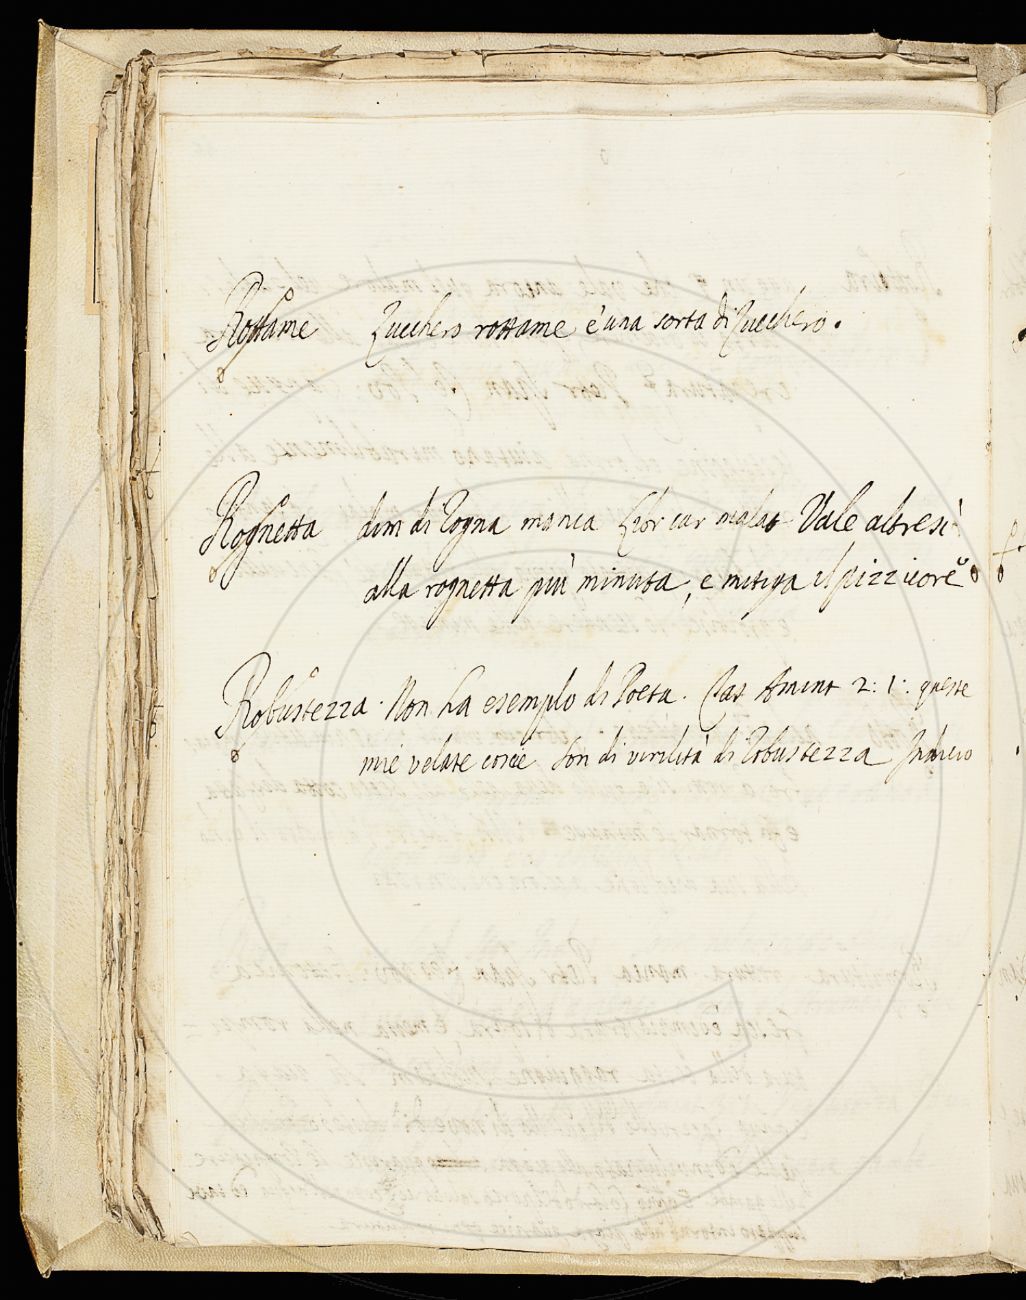 Rottame Zucchero rottame è una sorta di Zucchero.
Rognetta dim di Rogna manca Libr cur malat Vale altresì
alla rognetta più minuta, e mitiga il pizzicore
Robustezza. Non ha esempio di Poeta. Tas Amint 2: 1: queste
mie velate coscie Son di virilità di Robustezza Indicio